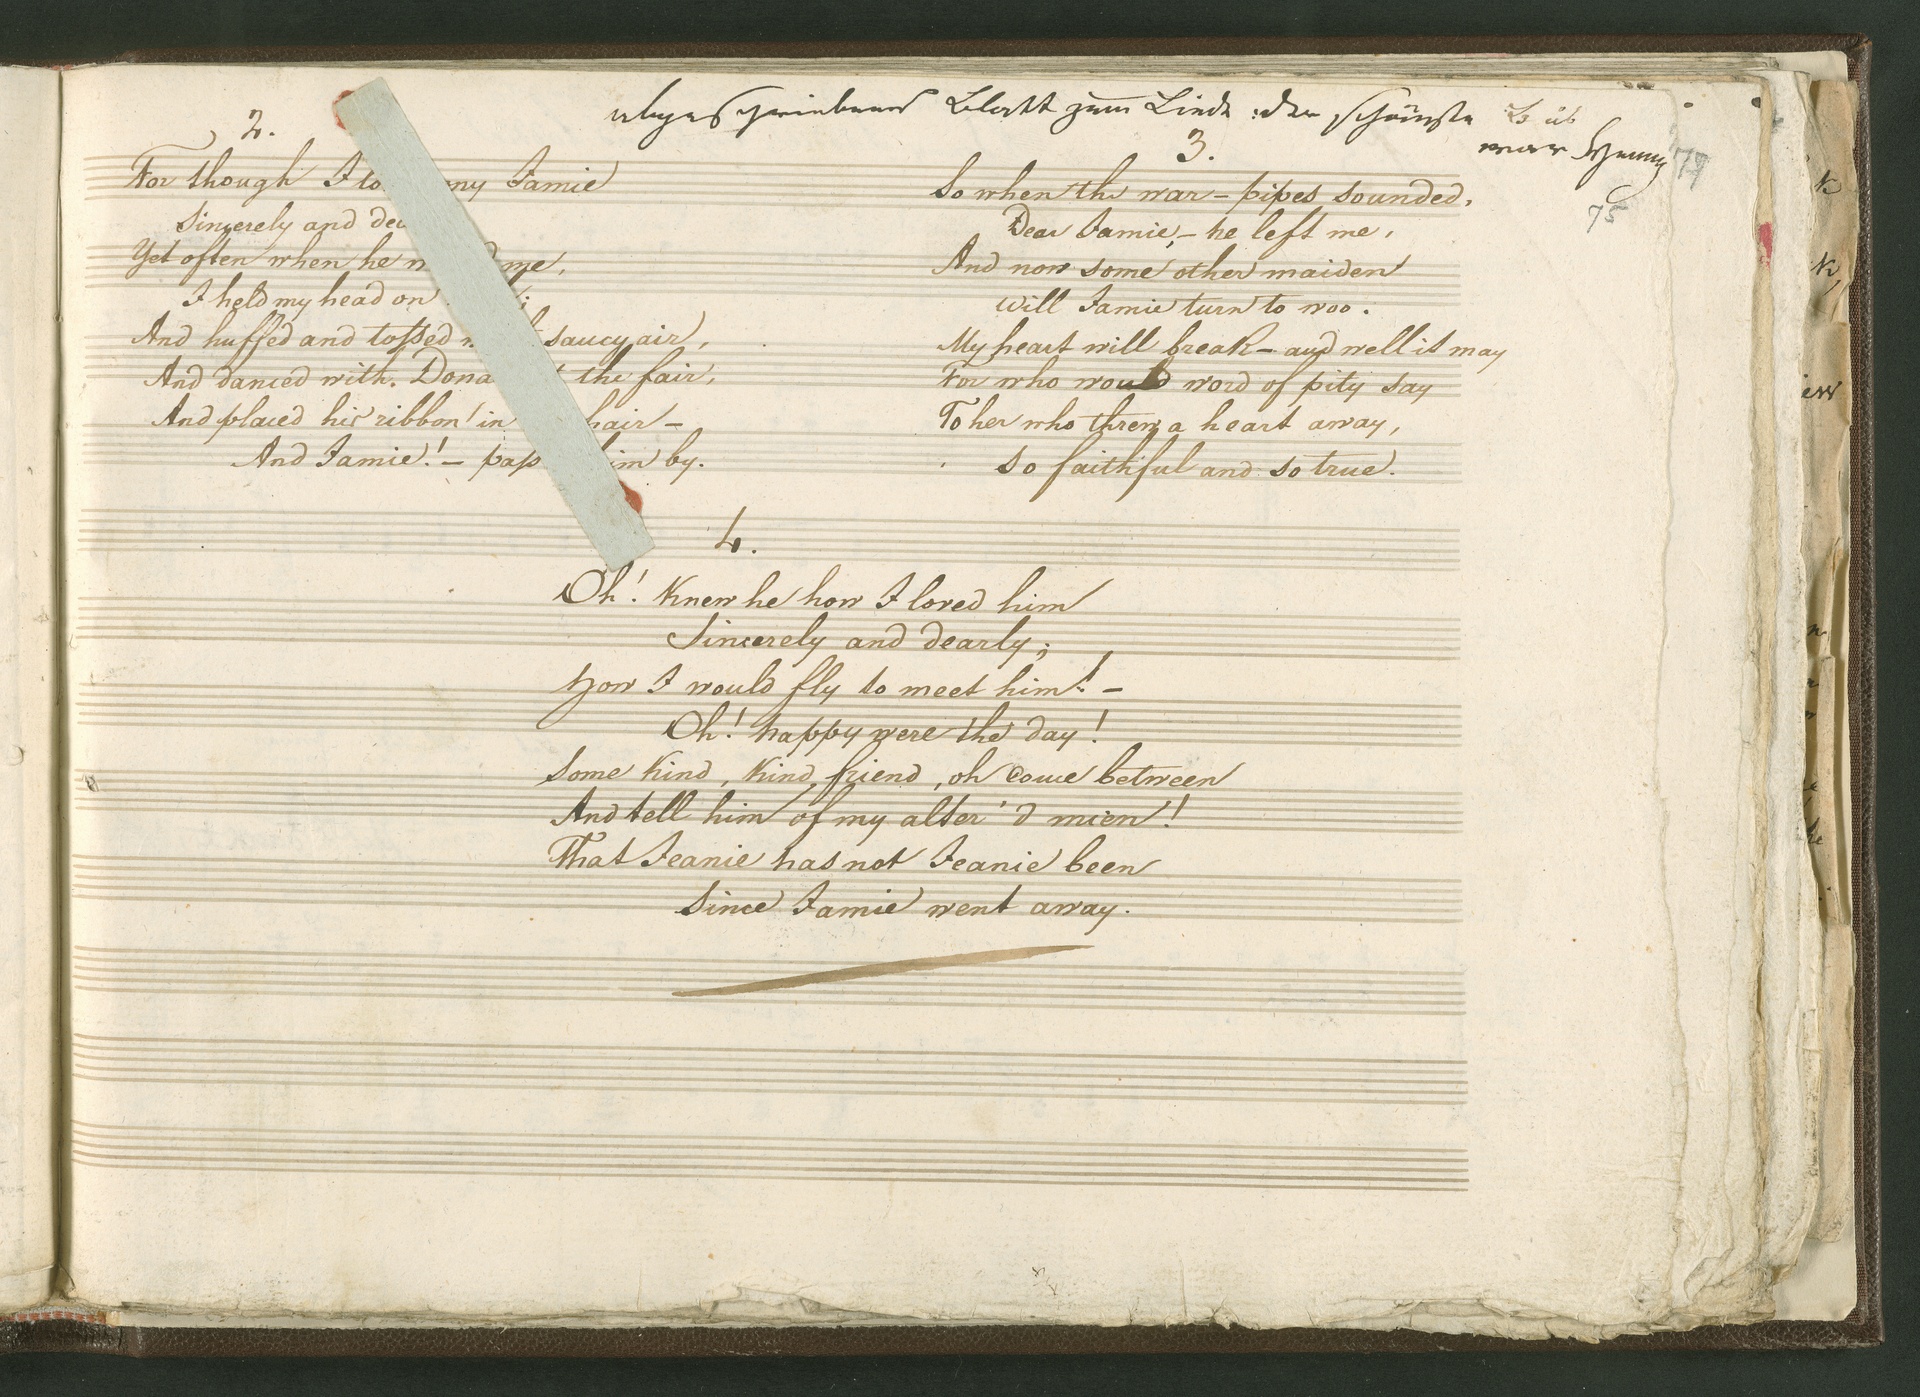 abgeschriebenes Blatt zum Liede: der schönste Bub
war Henny
77
75
2.
For though I lo ny Jamie
Sincerely and dea
Yet often when he m d me,
I held my head on
And huffed and tossed saucy air,
And danced with. Dona t the fair,
And placed his ribbon in hair –
And Jamie! – pass im by.
3.
So when the war – pipes sounded,
Dear Jamie, – he left me,
And now some other maiden
Will Jamie turn to woo:
My heart will break – and well it may
For who would word of pity say
To her who threw a heart away,
So faithful and so true.
4.
Oh! Knew he how I loved him
Sincerely and dearly;
How I would fly to meet him! –
Oh! happy were the day!
Some kind, kind friend, oh come between
And tell him of my alter'd mien!
That Jeanie has not Jeanie been
Since Jamie went away.